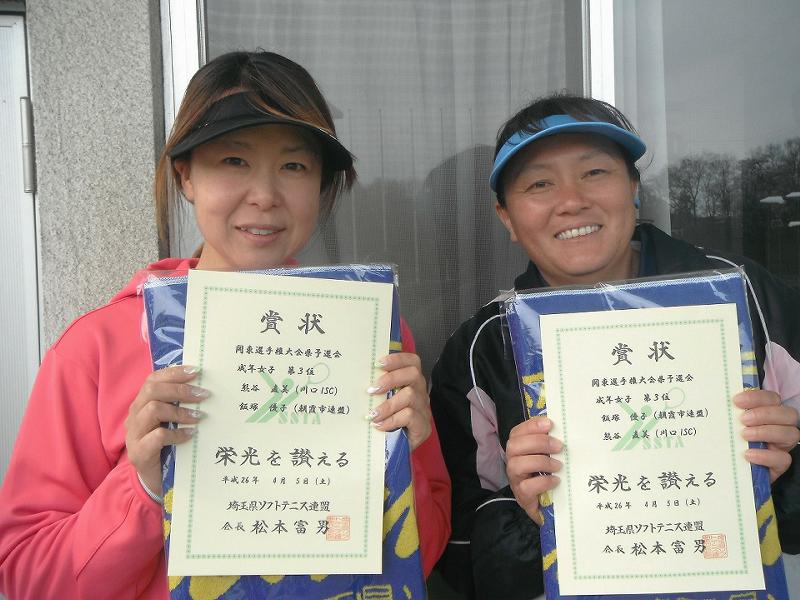 賞状
関東選手権大会県予選会
成年女子 第3位
熊谷 直美(川口ISC)
飯塚 優子(朝霞市連盟)
SSTA
栄光を讃える
平成26年 4月 5日(土)
埼玉県ソフトテニス連盟
会長 松本富男
賞状
関東選手権大会県予選会
成年女子 第3位
飯塚 優子(朝霞市連盟)
熊谷 直美(川口ISC)
SSTA
栄光を讃える
平成26年 4月 5日(土)
埼玉県ソフトテニス連盟
会長 松本富男